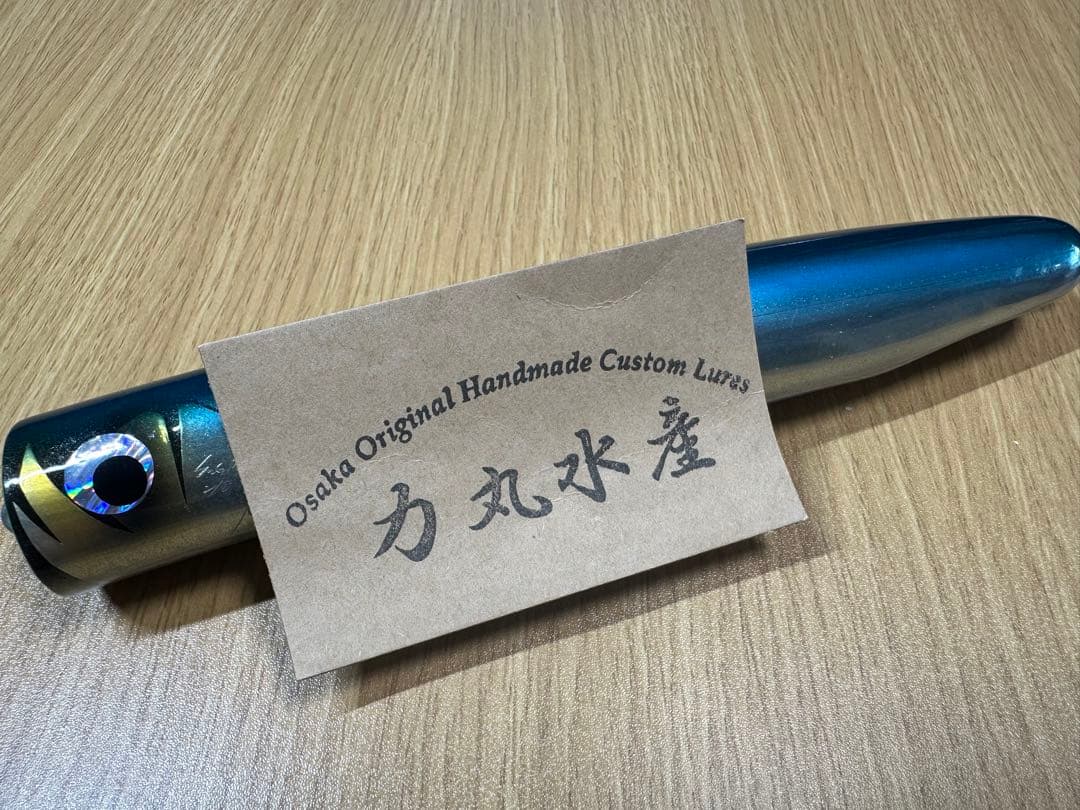 Osaka Original Handmade Custom Lures
力丸水産